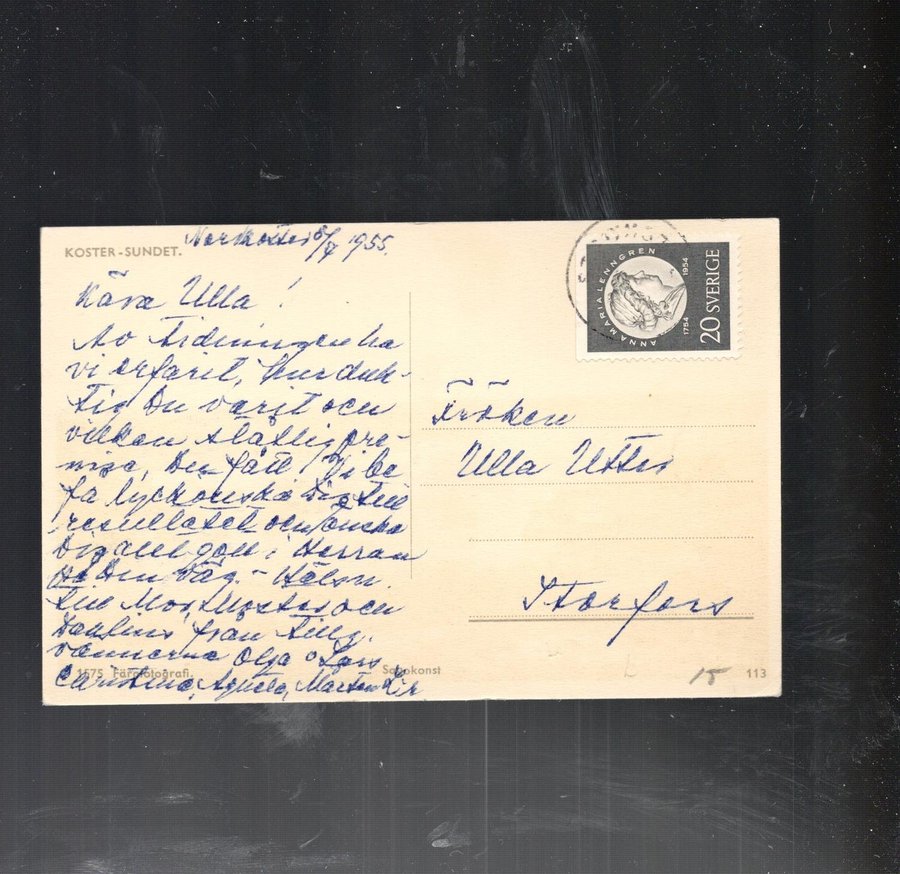 KOSTER-SUNDET.
Nordkoster 8/7 1955.
Kära Ulla!
Av Tidningen ha
vi erfarit, hur duk-
tig Du varit och
vilken ståtlig pre-
mie, Du fått! Vi be
få lyckönska Dig till
resultatet och önska
Dig allt gott i Herran
på Din väg. - Hälsn.
till Mor, Moster och
från tillg.
vännerna Olga o Lars
Christina, Agneta, Mårten
1575 Färgfotografi.
Sagokonst
113
15
ANNA MARIA LENNGREN
1754 1954
20 SVERIGE
Fröken
Ulla Utter
Storfors